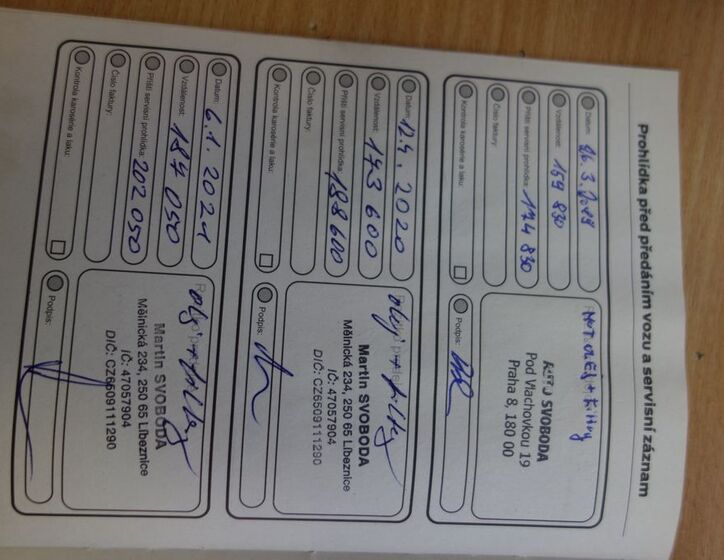 Prohlídka před předáním vozu a servisní záznam
Datum: 26. 3. 2019
Vzdálenost: 159 830
Příští servisní prohlídka: 174 830
Číslo faktury:
Kontrola karosérie a laku:
Mot. olej + filtry
SVOBODA
Pod Vlachovkou 19
Praha 8, 180 00
Podpis:
Datum: 12. 4. 2020
Vzdálenost: 173 600
Příští servisní prohlídka: 188 600
Číslo faktury:
Kontrola karosérie a laku:
olej + filtry
Martin SVOBODA
Mělnická 234, 250 65 Líbeznice
IČ: 47057904
DIČ: CZ6509111290
Podpis:
Datum: 6. 1. 2021
Vzdálenost: 187 050
Příští servisní prohlídka: 202 050
Číslo faktury:
Kontrola karosérie a laku:
olej + filtry
Martin SVOBODA
Mělnická 234, 250 65 Líbeznice
IČ: 47057904
DIČ: CZ6509111290
Podpis: